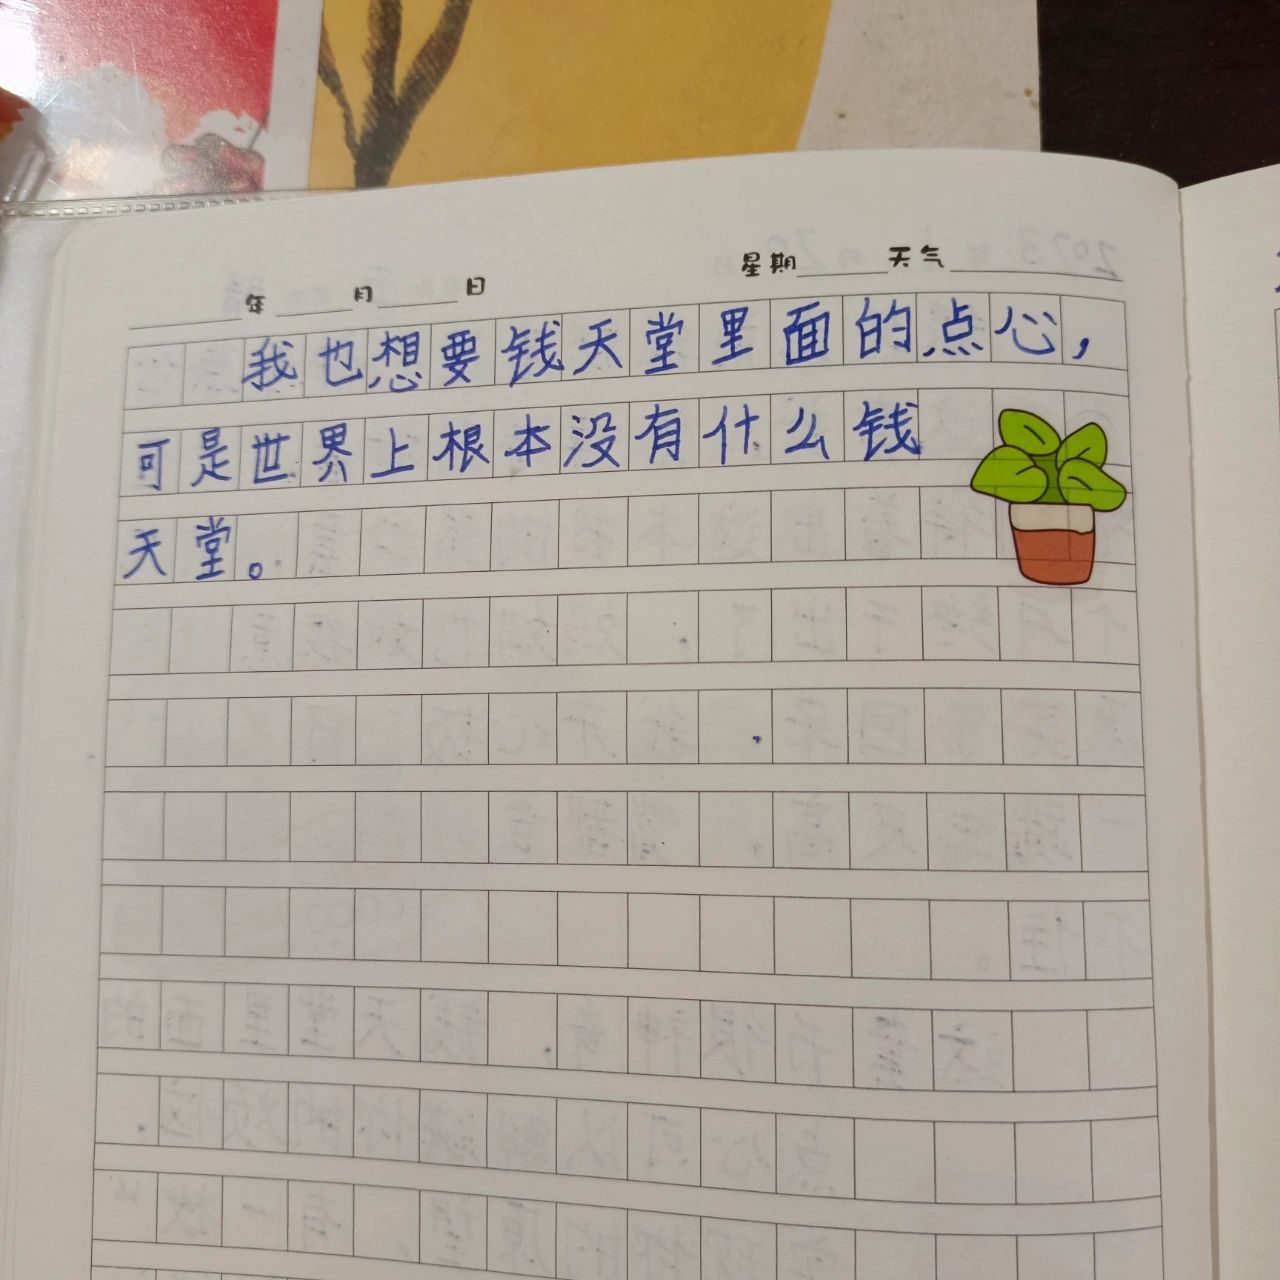 年 月 日 星期 天气
我也想要钱天堂里面的点心，
可是世界上根本没有什么钱
天堂。